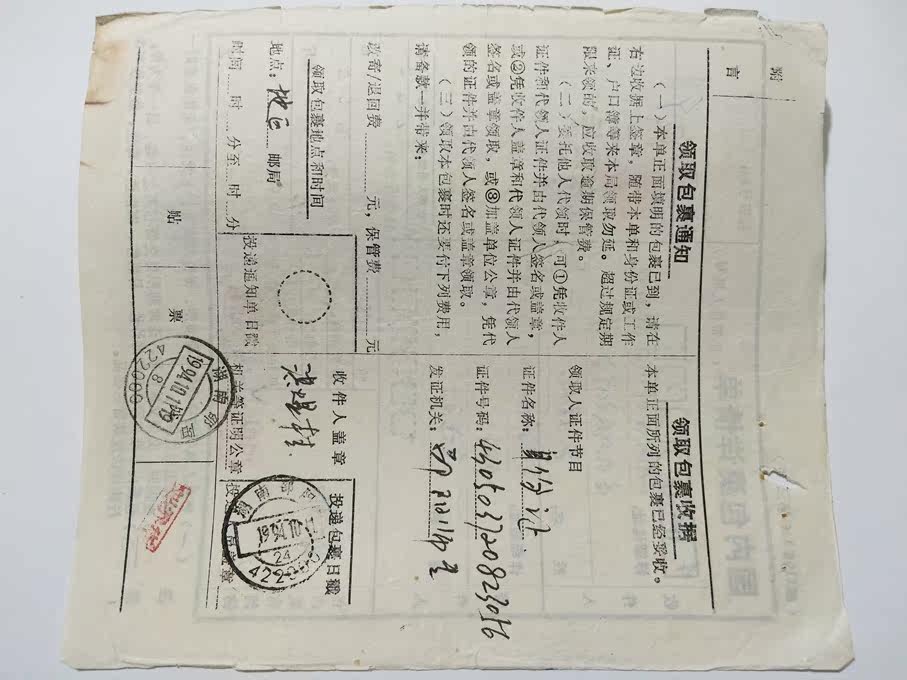 附
言
领取包裹通知
(一)本单正面填明的包裹已到,请在
右边收据上签章,随带本单和身份证或工作
证、户口簿等来本局领取勿延。超过规定期
限来领的,应收取逾期保管费。
(二)委托他人代领时,可①凭收件人
证件和代领人证件并由代领人签名或盖章,
或②凭收件人盖章和代领人证件并由代领人
签名或盖章领取,或③加盖单位公章,凭代
领的证件并由代领人签名或盖章领取。
(三)领取本包裹时还要付下列费用,
请备款一并带来:
改寄/退回费 元,保管费 元
领取包裹地点和时间
地点: 邮局
时间 时 分至 时 分
投递通知单日戳
领取包裹收据
本单正面所列的包裹已经妥收。
领取人证件节目
证件名称:身份证
证件号码:430503720823036
发证机关:
收件人盖章
投递包裹日戳
湖南邵阳
1994.10.11
24
机关签证明公章
贴
票
湖南邵
1994.10.
8
422000
国内包裹详情单